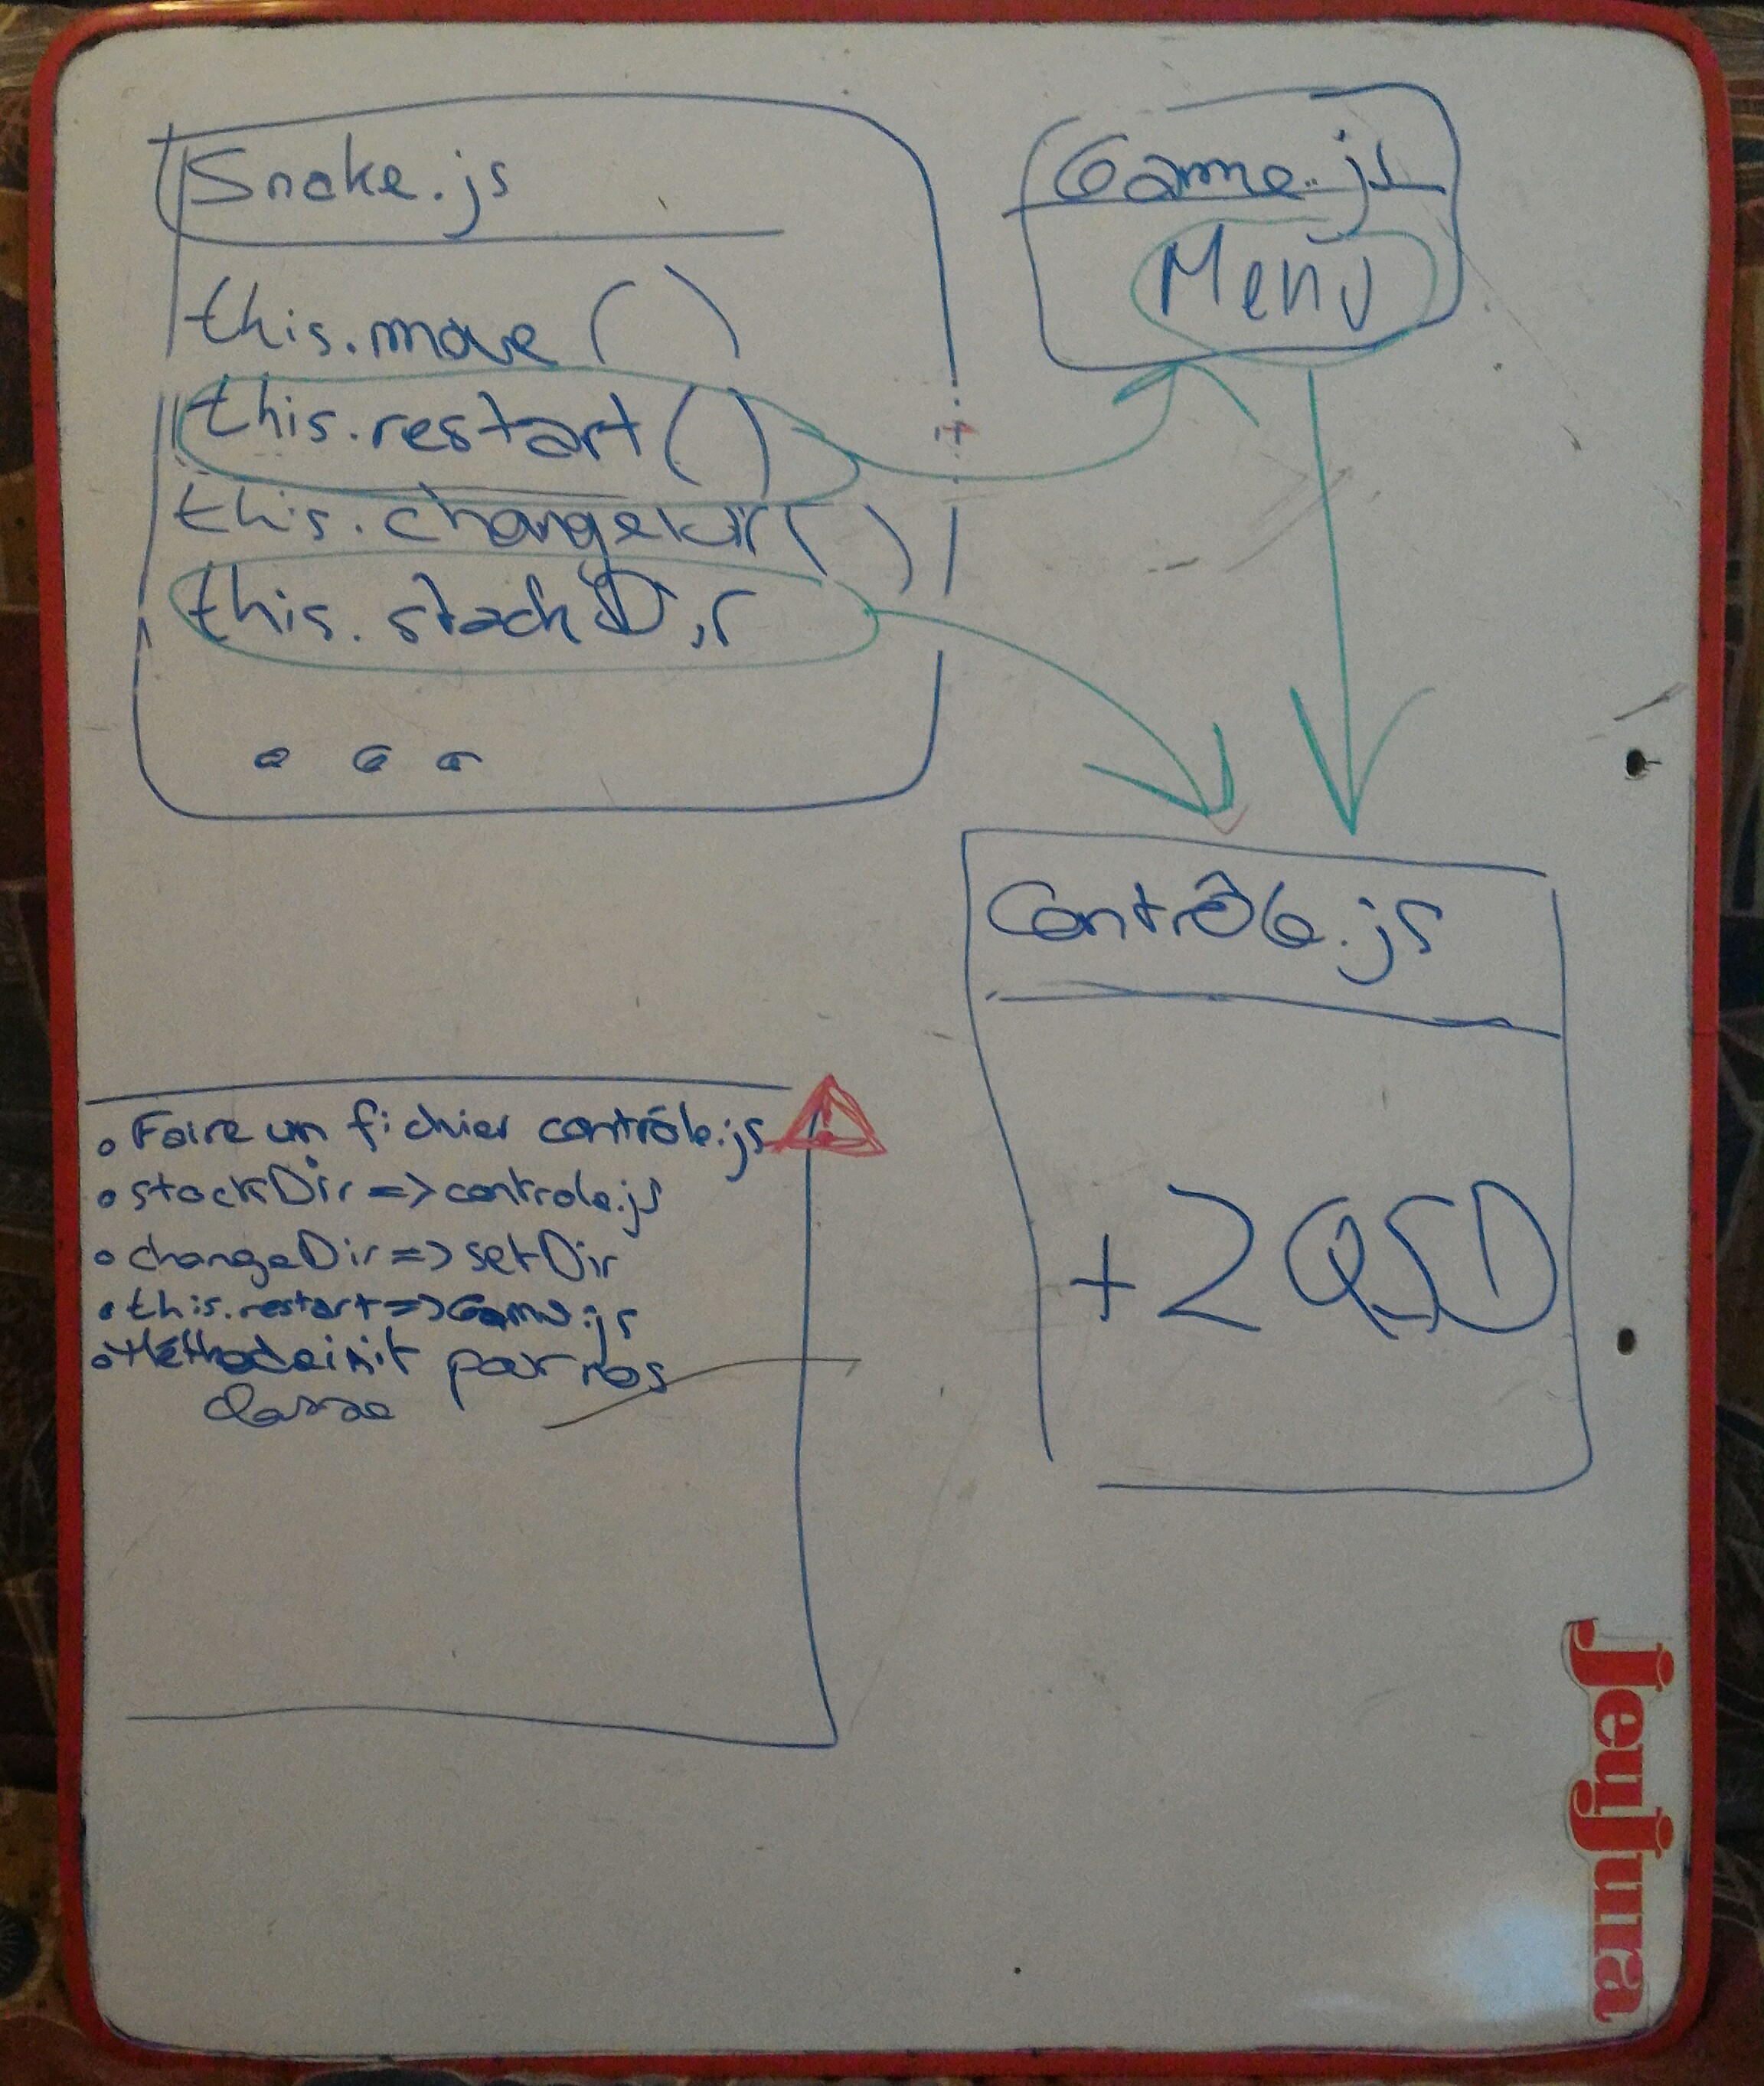 Snake.js
this.move ( )
this.restart ( )
this.changeDir ( )
this.stackDir
...
Game.js
Menu
Contrôle.js
+ZQSD
• Faire un fichier contrôle.js
• stackDir => controle.js
• changeDir => setDir
• this.restart => Game.js
• Méthode init pour nos
classe
!
jeujura